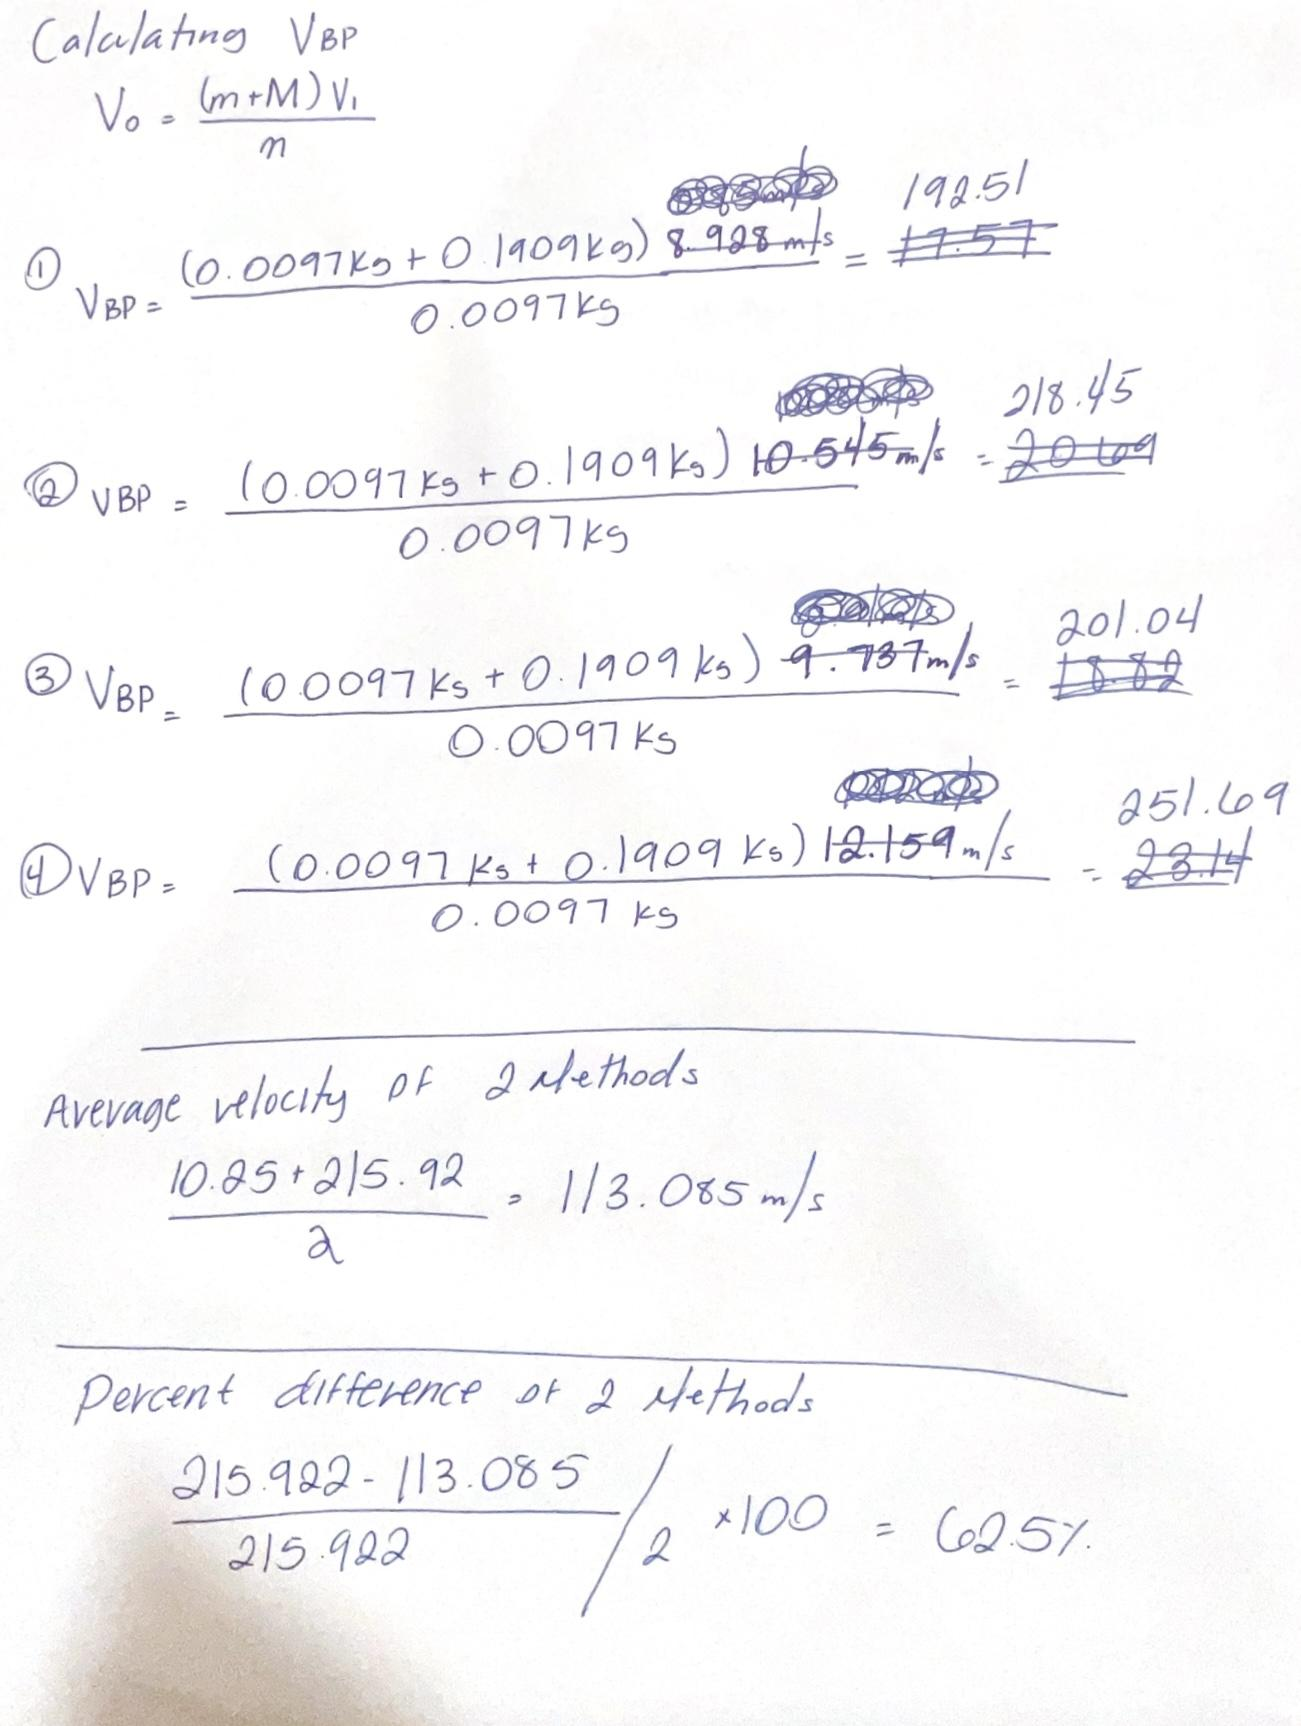 Calculating VBP
Vo = (m+M) V1
m
192.51
① VBP = (0.0097Kg + 0.1909Kg) 8.928 m/s = 17.57
0.0097Kg
218.45
② VBP = (0.0097 Kg + 0.1909Kg) 10.545 m/s = 20.69
0.0097Kg
201.04
③ VBP = (0.0097 Kg + 0.1909 Kg) 9.737m/s = 18.82
0.0097 Kg
251.69
④ VBP = (0.0097 Kg + 0.1909 Kg) 12.159 m/s = 23.14
0.0097 Kg
Average velocity of 2 Methods
10.25 + 215.92 = 113.085 m/s
2
Percent difference of 2 Methods
215.922 - 113.085
215.922 / 2 x100 = 62.5%